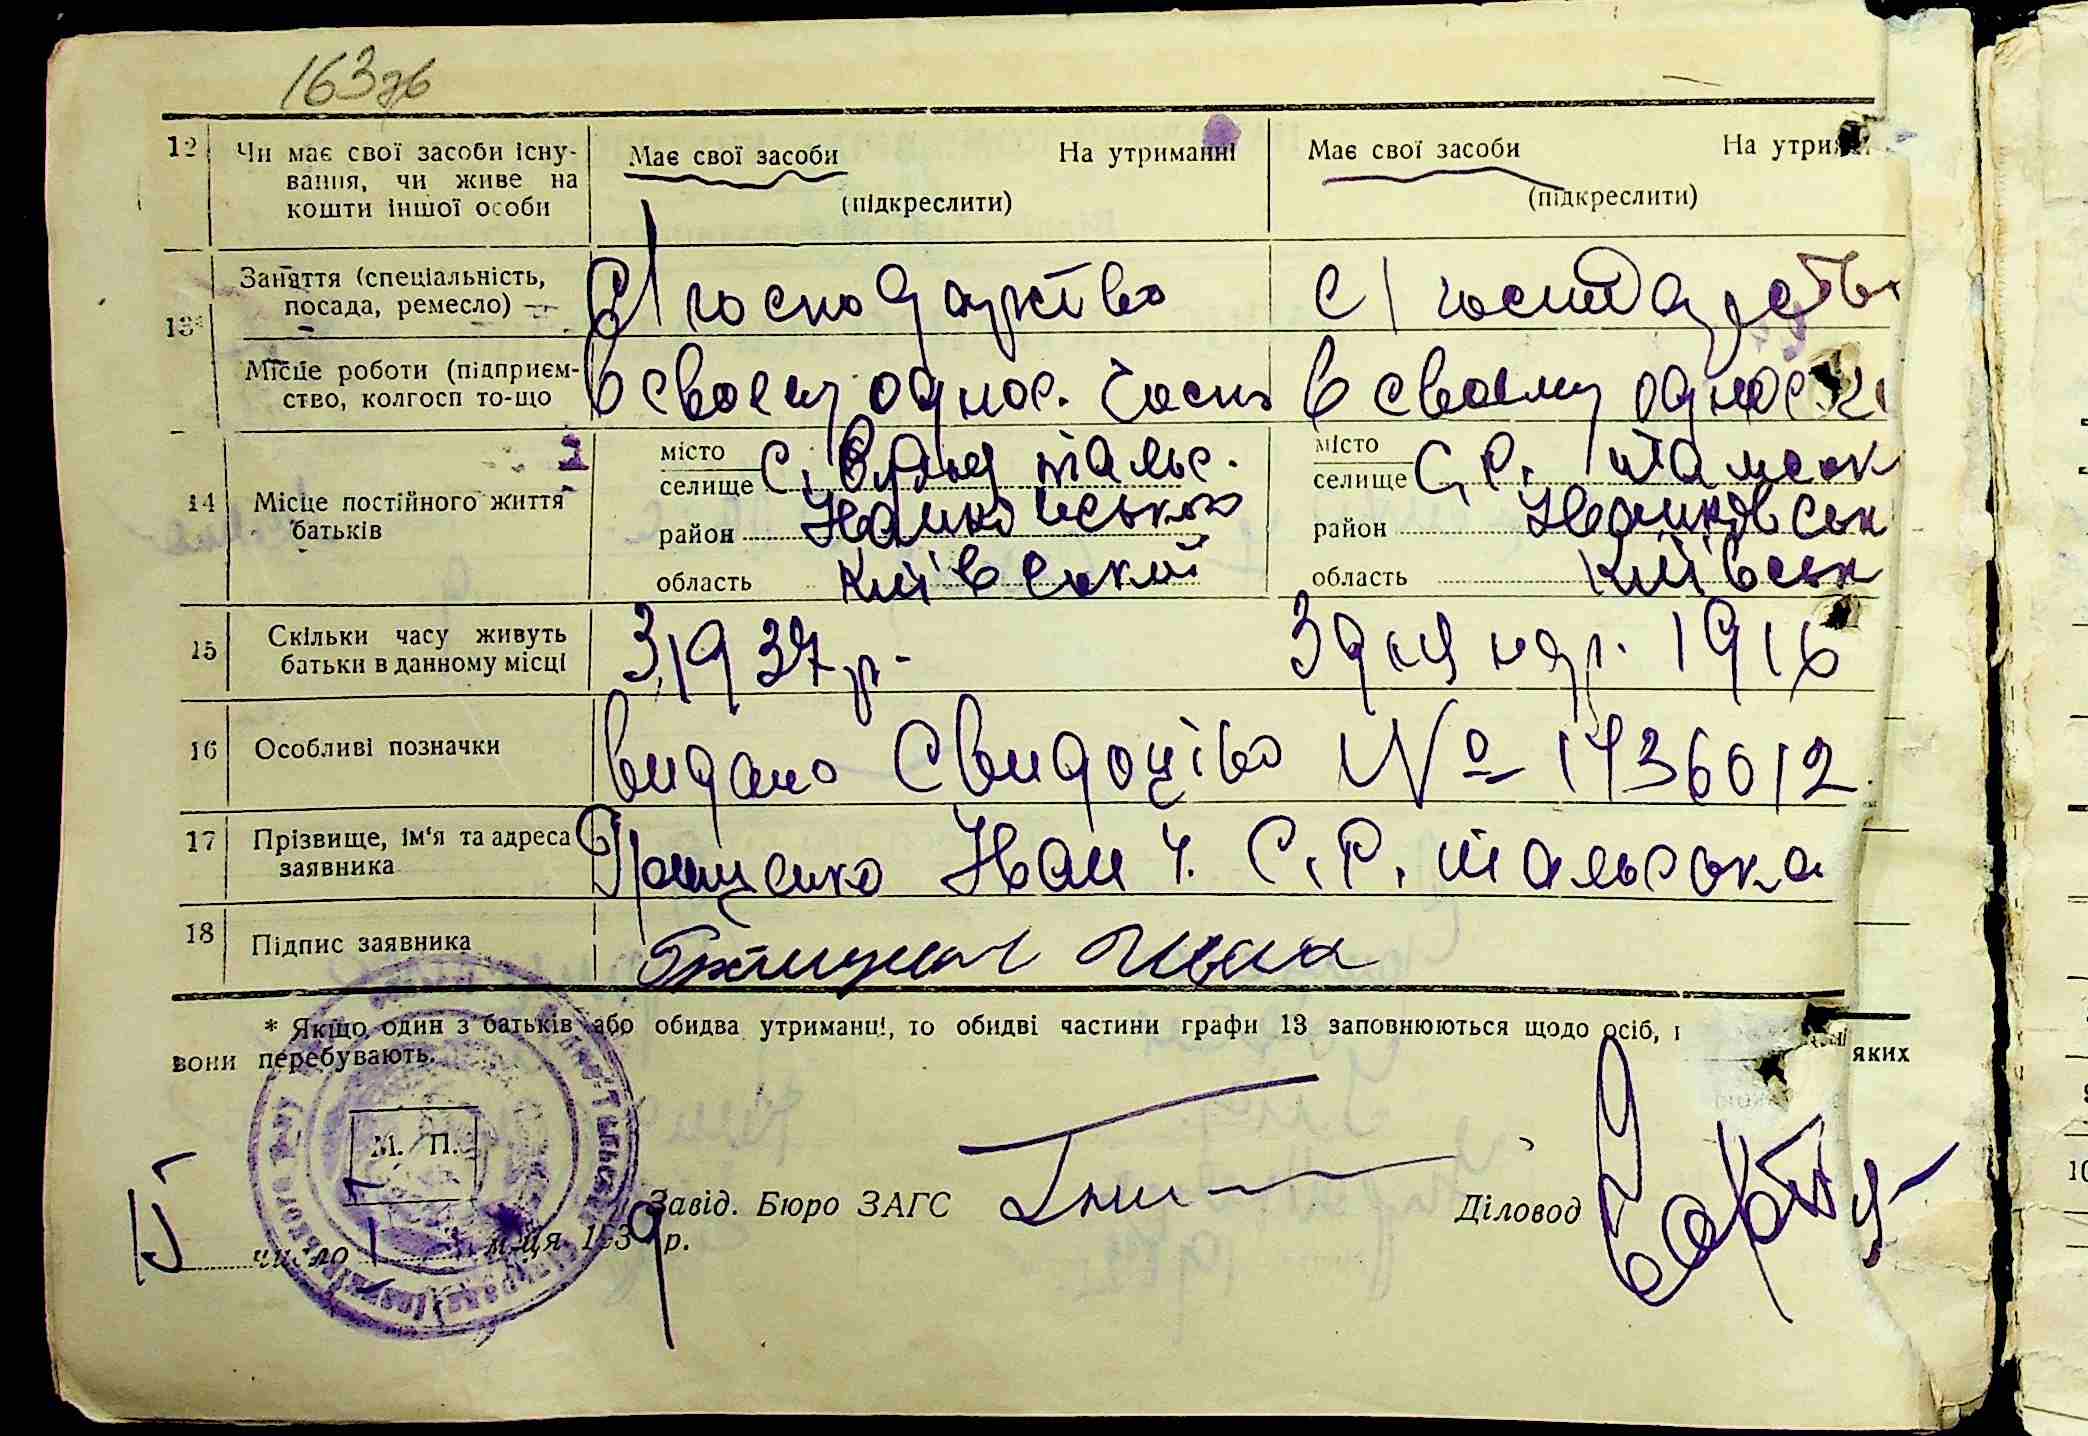 163зв
12 Чи має свої засоби існу-
вання, чи живе на
кошти іншої особи
Має свої засоби На утриманні
(підкреслити)
Має свої засоби На утрим
(підкреслити)
13* Заняття (спеціальність,
посада, ремесло)
с/господарство
с/господарств
Місце роботи (підприєм-
ство, колгосп то-що
в своєму однос. госп
в своєму однос
14 Місце постійного життя
батьків
місто
селище С.
район
область Київської
місто
селище С.Р. Тальськ
район Іванковськ
область Київськ
15 Скільки часу живуть
батьки в данному місці
З 1937 р.
З 1916
16 Особливі позначки
видано Свидоцтво № 1736012
17 Прізвище, ім'я та адреса
заявника
Грищенко Іван Ч. С.Р. Тальська
18 Підпис заявника
* Якщо один з батьків або обидва утриманці, то обидві частини графи 13 заповнюються щодо осіб, яких
вони перебувають.
М. П.
Завід. Бюро ЗАГС
Діловод
15 число 1 м-ця 1939 р.